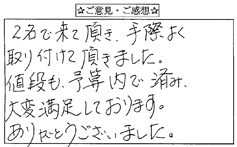 ☆ご意見・ご感想☆
2名で来て頂き、手際よく
取り付けて頂きました。
値段も、予算内で済み、
大変満足しております。
ありがとうございました。